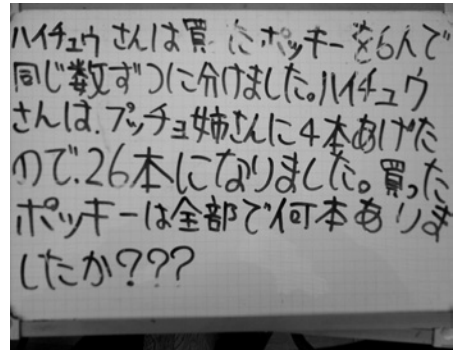 ハイチュウさんは買ったポッキーを6人で
同じ数ずつに分けました。ハイチュウ
さんは、プッチョ姉さんに4本あげた
ので、26本になりました。買った
ポッキーは全部で何本ありま
したか???